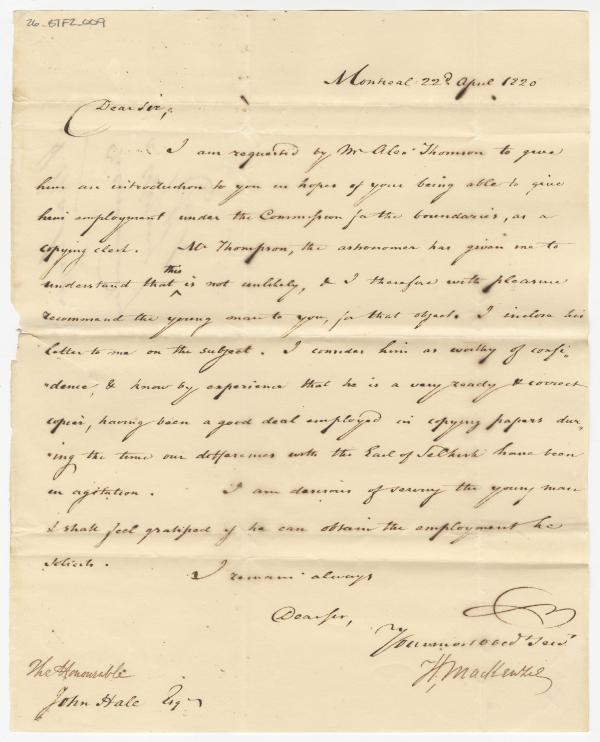 26_ETF2_009
Montreal 22d April 1820
Dear Sir,
I am requested by Mr Alexr Thomson to give
him an introduction to you in hopes of your being able to give
him employment under the Commission for the boundaries, as a
copying clerk. Mr Thompson, the astronomer has given me to
understand that this is not unlikely, & I therefore with pleasure
recommend the young man to you, for that object. I inclose his
letter to me on the subject. I consider him as worthy of confi-
dence, & know by experience that he is a very ready & correct
copier, having been a good deal employed in copying papers dur-
ing the time our differences with the Earl of Selkirk have been
in agitation. I am desirous of serving the young man
& shall feel gratified if he can obtain the employment he
solicits.
I remain always
Dear Sir,
Your most obedt Servt
H. MacKenzie
The Honourable
John Hale Esqr